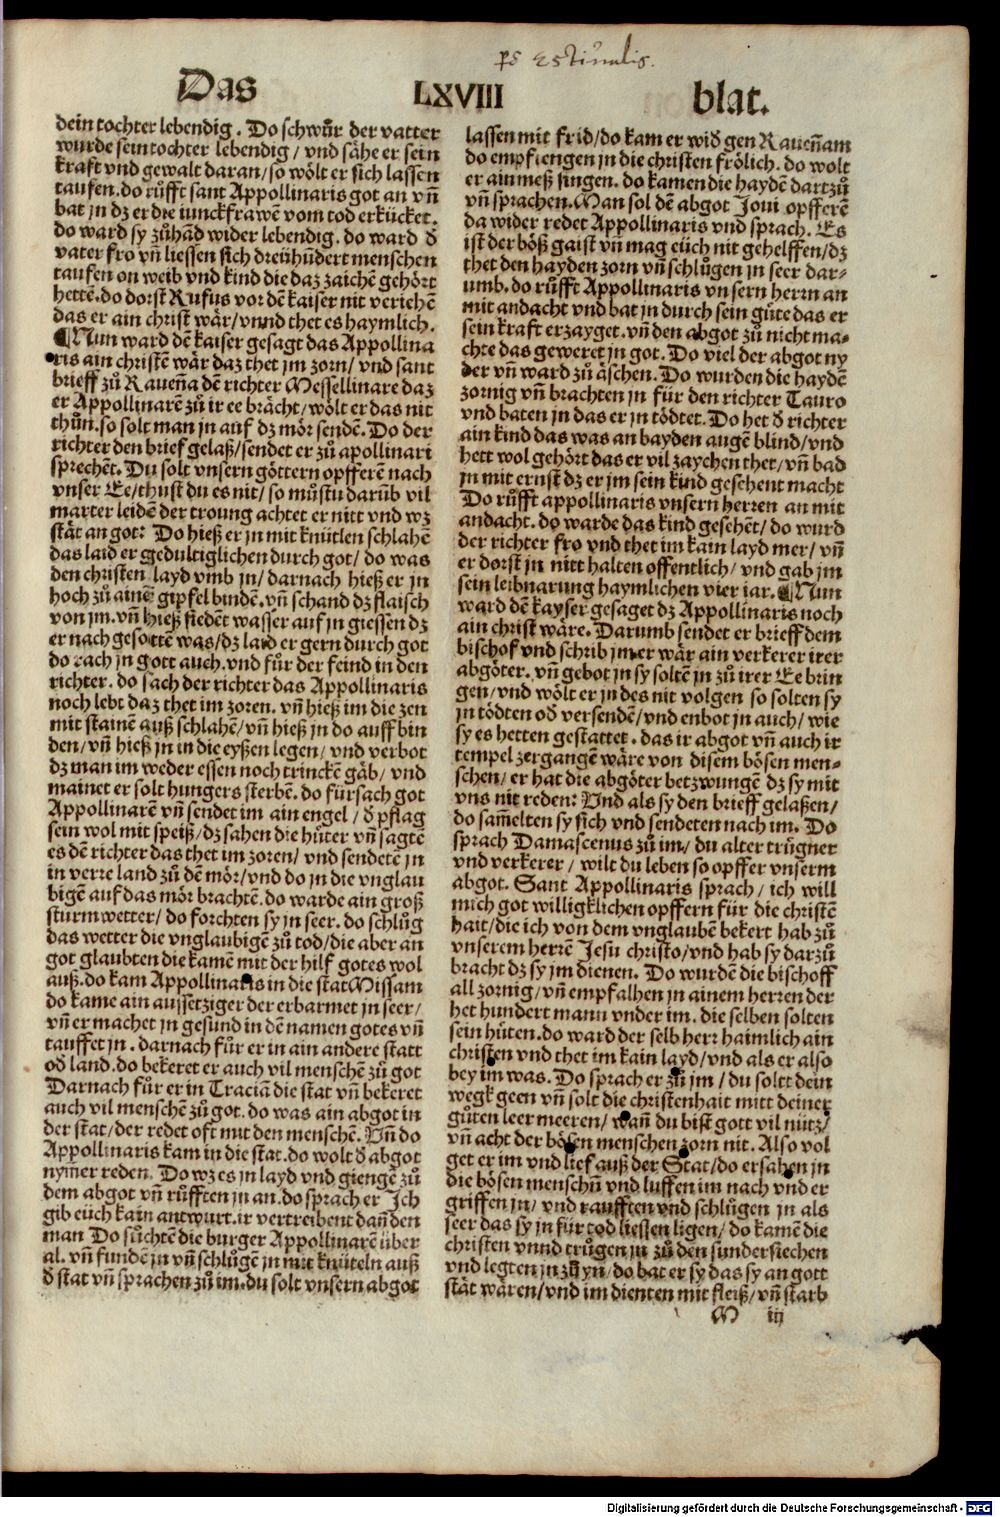 ps estiualis.
Das LXVIII blat.
dein tochter lebendig. Do schwůr der vatter
wurde sein tochter lebendig / vnd sähe er sein
kraft vnd gewalt daran / so wölt er sich lassen
taufen. do růfft sant Appollinaris got an vñ
bat jn dz er die iunckfrawē vom tod erkücket.
do ward sy zůhād wider lebendig. do ward d̄
vater fro vñ liessen sich dreühūdert menschen
taufen on weib vnd kind die daz zaichē gehört
hettē. do dorst Rufus vor dē kaiser nit veriehē
das er ain christ wär / vnnd thet es haymlich.
¶Nun ward dē kaiser gesagt das Appollina
ris ain christē wär daz thet jm zorn / vnd sant
brieff zů Rauēna dē richter Messellinare daz
er Appollinarē zů ir ee brächt / wölt er das nit
thůn. so solt man jn auf dz mör sendē. Do der
richter den brief gelaß / sendet er zů apollinari
sprechēt. Du solt vnsern göttern opfferē nach
vnser Ee / thust du es nit / so můstu darūb vil
marter leidē der troung achtet er nitt vnd wz
stät an got: Do hieß er jn mit knütlen schlahē
das laid er gedultiglichen durch got / do was
den christen layd vmb jn / darnach hieß er jn
hoch zů ainē gipfel bindē. vñ schand dz flaisch
von jm. vñ hieß siedēt wasser auf jn giessen dz
er nach gesottē was / dz laid er gern durch got
do rach jn gott auch. vnd für der feind in den
richter. do sach der richter das Appollinaris
noch lebt daz thet im zoren. vñ hieß im die zen
mit stainē auß schlahē / vñ hieß jn do auff bin
den / vñ hieß jn in die eyßen legen / vnd verbot
dz man im weder essen noch trinckē gäb / vnd
mainet er solt hungers sterbē. do fürsach got
Appollinarē vñ sendet im ain engel / d̄ pflag
sein wol mit speiß / dz sahen die hüter vñ sagtē
es dē richter das thet im zoren / vnd sendetē jn
in verre land zů dē mör / vnd do jn die vnglau
bigē auf das mör brachtē. do warde ain groß
sturmwetter / do forchten sy jn seer. do schlůg
das wetter die vnglaubigē zů tod / die aber an
got glaubten die kamē mit der hilf gotes wol
auß. do kam Appollinaris in die stat Missam
do kame ain aussetziger der erbarmet jn seer /
vñ er machet jn gesund in dē namen gotes vñ
tauffet jn. darnach für er in ain andere statt
od̄ land. do bekeret er auch vil menschē zů got
Darnach für er in Traciā die stat vñ bekeret
auch vil menschē zů got. do was ain abgot in
der stat / der redet oft mit den menschē. Vñ do
Appollinaris kam in die stat. do wolt d̄ abgot
nym̄er reden. Do wz es jn layd vnd giengē zů
dem abgot vñ růfften jn an. do sprach er Ich
gib euch kain antwurt. ir vertreibent dañ den
man Do sůchtē die burger Appollinarē über
al. vñ fundē jn vñ schlůgē jn mit knüteln auß
d̄ stat vñ sprachen zů im. du solt vnsern abgot
lassen mit frid / do kam er wid̄ gen Raueñam
do empfiengen jn die christen frölich. do wolt
er ain meß singen. do kamen die haydē dartzů
vñ sprachen. Man sol dē abgot Joui opfferē
da wider redet Appollinaris vnd sprach. Es
ist der böß gaist vñ mag eüch nit gehelffen / dz
thet den hayden zorn vñ schlůgen jn seer dar-
umb. do růfft Appollinaris vnsern herrn an
mit andacht vnd bat jn durch sein güte das er
sein kraft erzayget. vñ den abgot zů nicht ma-
chte das geweret jn got. Do viel der abgot ny
der vñ ward zů äschen. Do wurden die haydē
zornig vñ brachten jn für den richter Tauro
vnd baten jn das er jn tödtet. Do het d̄ richter
ain kind das was an bayden augē blind / vnd
hett wol gehört das er vil zaychen thet / vñ bad
jn mit ernst dz er jm sein kind gesehent macht
Do růfft appollinaris vnsern herren an mit
andacht. do warde das kind gesehēt / do wurd
der richter fro vnd thet im kain layd mer / vñ
er dorst jn nitt halten offentlich / vnd gab jm
sein leibnarung haymlichen vier iar. ¶Nun
ward dē kayser gesaget dz Appollinaris noch
ain christ wäre. Darumb sendet er brieff dem
bischof vnd schrib jm er wär ain verkerer irer
abgöter. vñ gebot jn sy soltē jn zů irer Ee brin
gen / vnd wölt er jn des nit volgen so solten sy
jn tödten od̄ versendē / vnd enbot jn auch / wie
sy es hetten gestattet. das ir abgot vñ auch ir
tempel zergangē wäre von disem bösen men-
schen / er hat die abgöter betzwungē dz sy mit
vns nit reden: Vnd als sy den brieff gelaßen /
do sam̄elten sy sich vnd sendeten nach im. Do
sprach Damascenus zů im / du alter trügner
vnd verkerer / wilt du leben so opffer vnserm
abgot. Sant Appollinaris sprach / ich will
mich got willigklichen opffern für die christē
hait / die ich von dem vnglaubē bekert hab zů
vnserem herrē Jesu christo / vnd hab sy darzů
bracht dz sy jm dienen. Do wurdē die bischoff
all zornig / vñ empfalhen jn ainem herren der
het hundert mann vnder im. die selben solten
sein hüten. do ward der selb herr haimlich ain
christen vnd thet im kain layd / vnd als er also
bey im was. Do sprach er zů jm / du soltt dein
wegk geen vñ solt die christenhait mitt deiner
gůten leer meeren / wañ du bist gott vil nütz /
vñ acht der bösen menschen zorn nit. Also vol
get er im vnd lief auß der Stat / do ersahen jn
die bösen menschñ vnd luffen im nach vnd er
griffen jn / vnd raufften vnd schlůgen jn als
seer das sy jn für tod liessen ligen / do kamē die
christen vnnd trůgen jn zů den sundersiechen
vnd legten jn zů yn / do bat er sy das sy an gott
stät wären / vnd im dienten mit fleiß / vñ starb
M iij
Digitalisierung gefördert durch die Deutsche Forschungsgemeinschaft - DFG